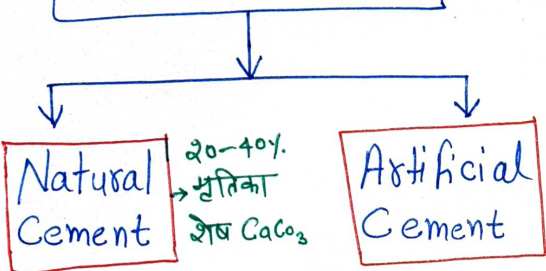 Natural
Cement
२०-४०%.
→ मृतिका
शेष CaCo₃
Artificial
Cement